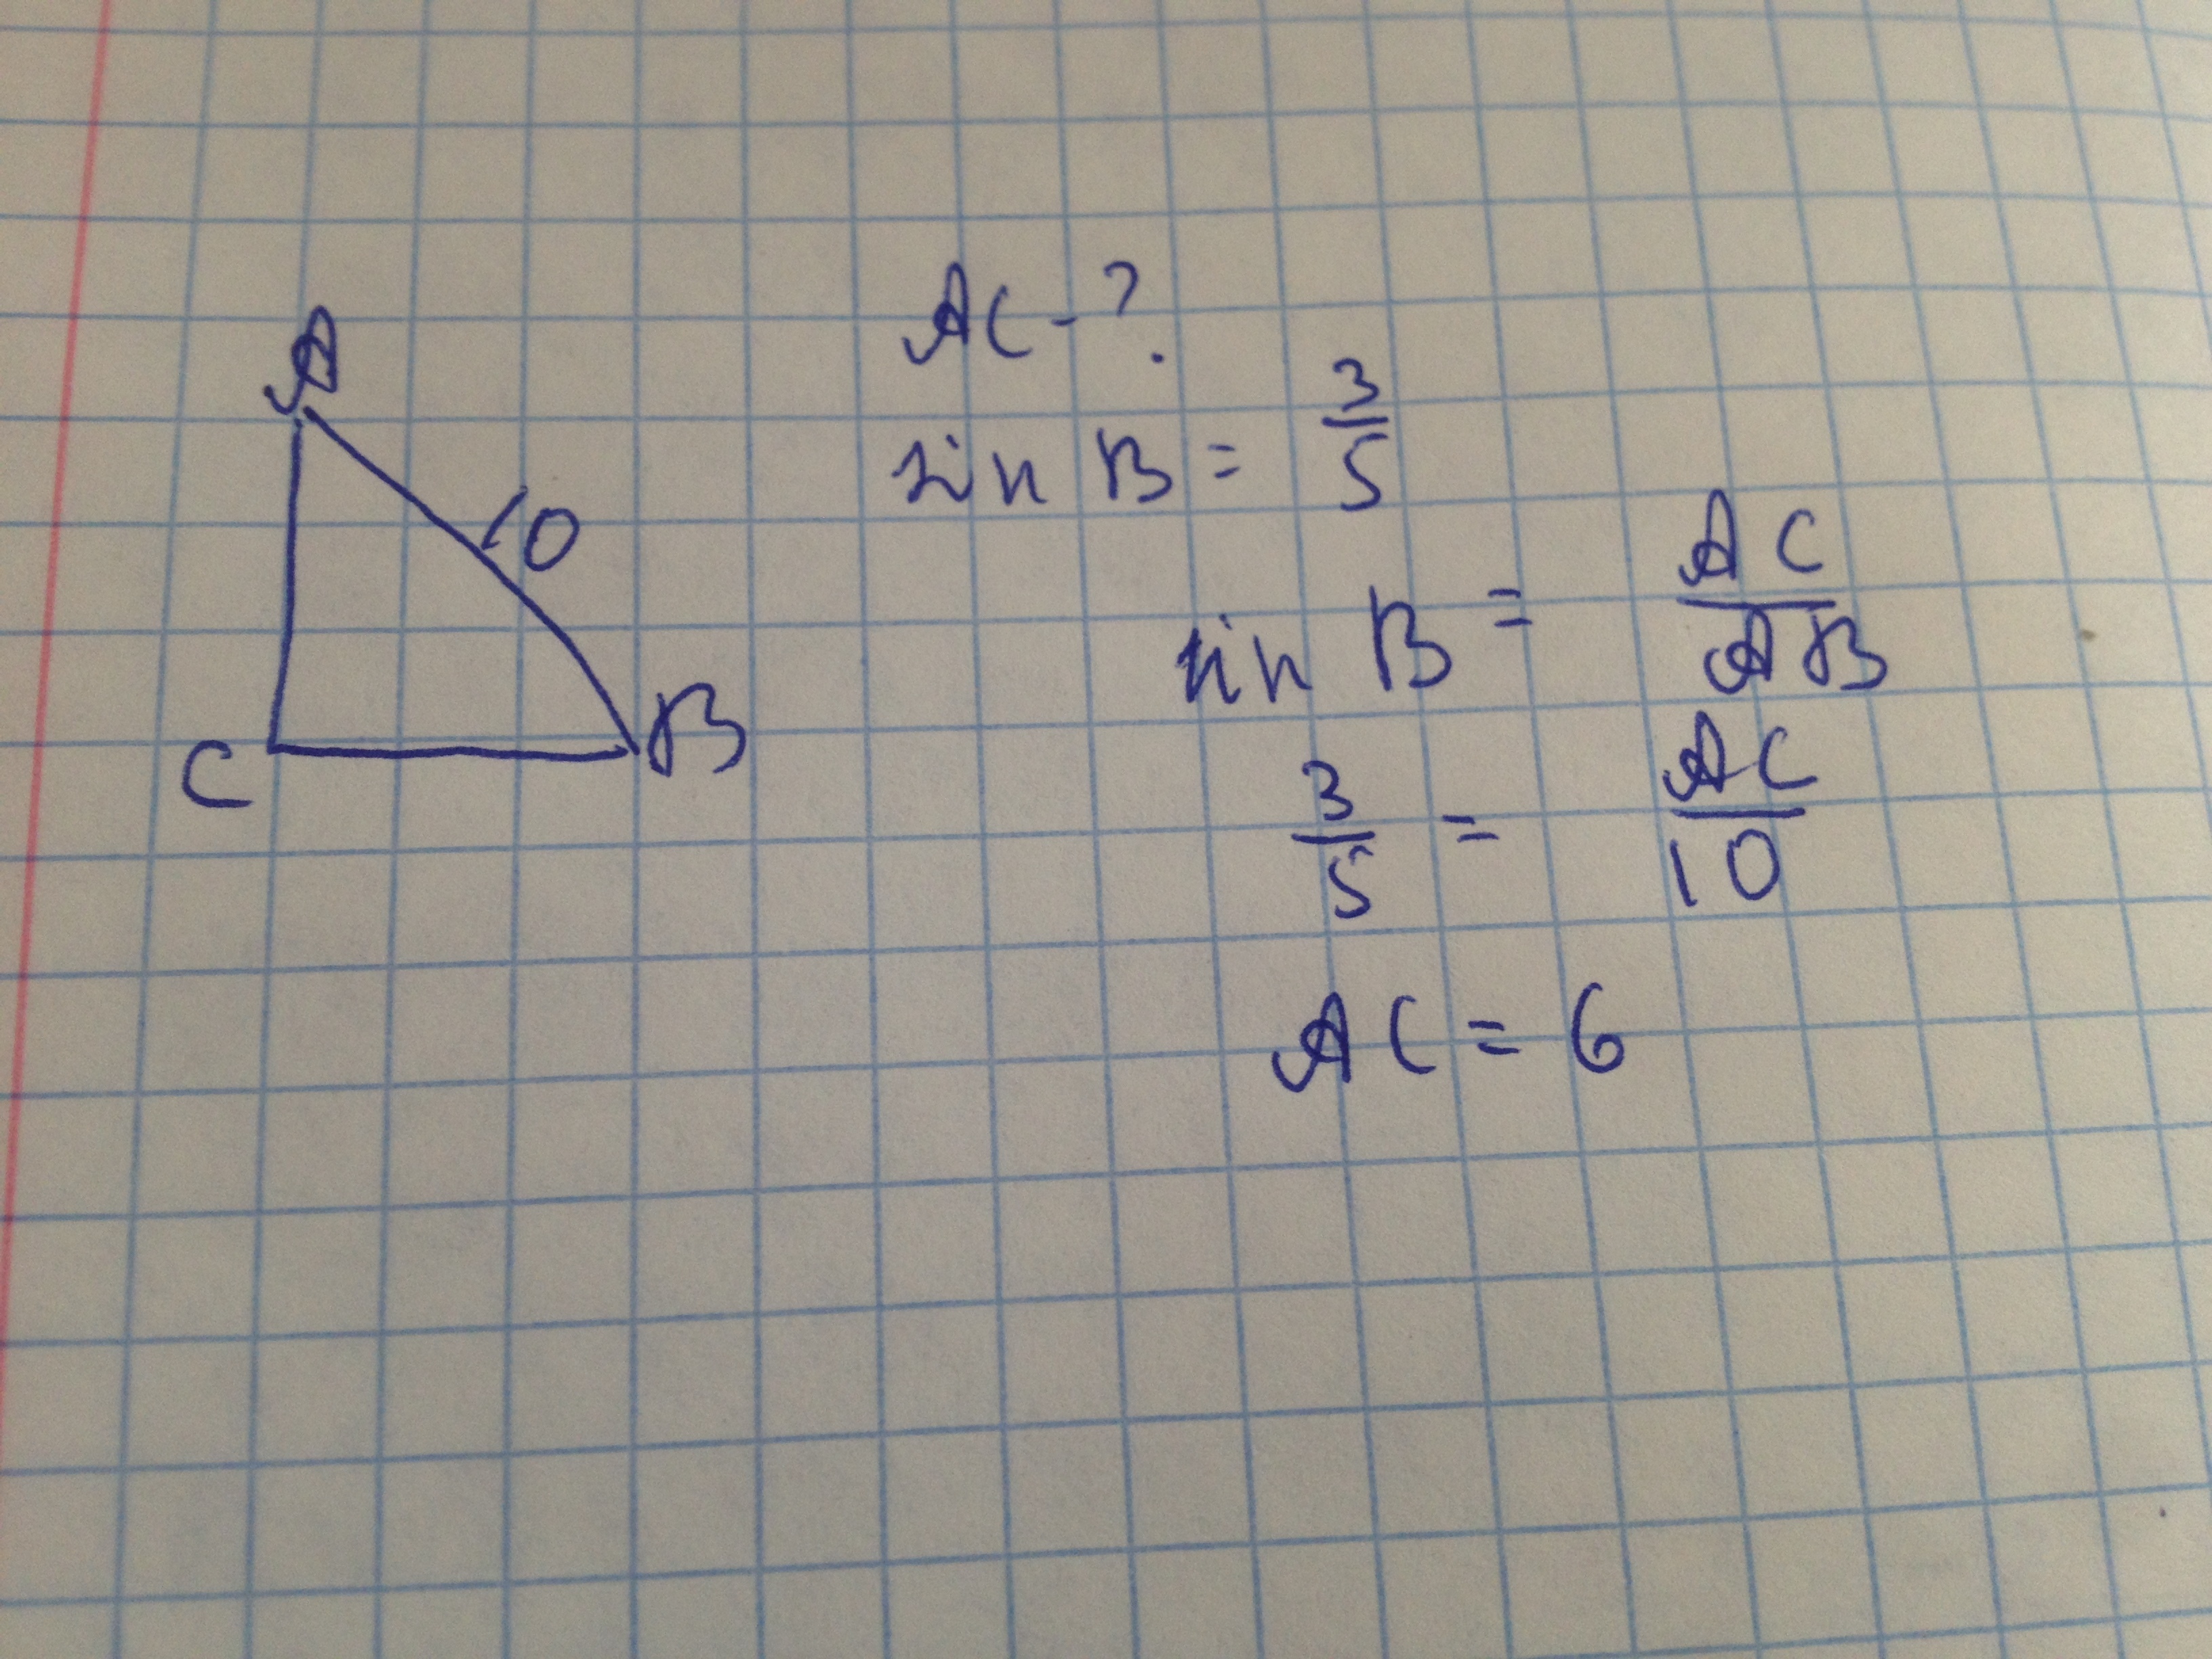 A
10
C
B
AC - ?
sin B = 3/5
sin B = AC/AB
3/5 = AC/10
AC = 6